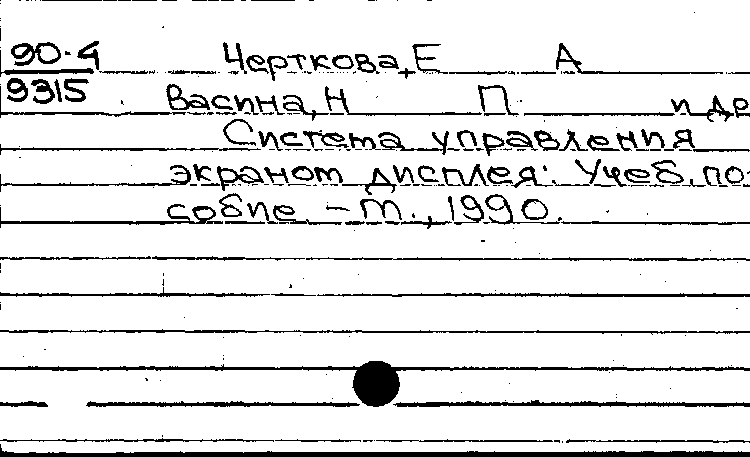 90-4 Черткова, Е А
9315 Васина, Н П и др
Система управления
экраном дисплея: Учеб. по-
собие. - М., 1990.